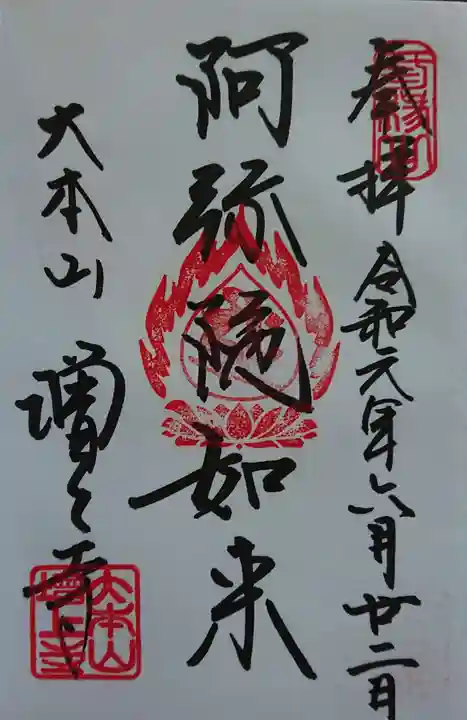 奉拝 令和元年六月廿二日
阿弥陀如来
大本山 増上寺
大本山
増上寺